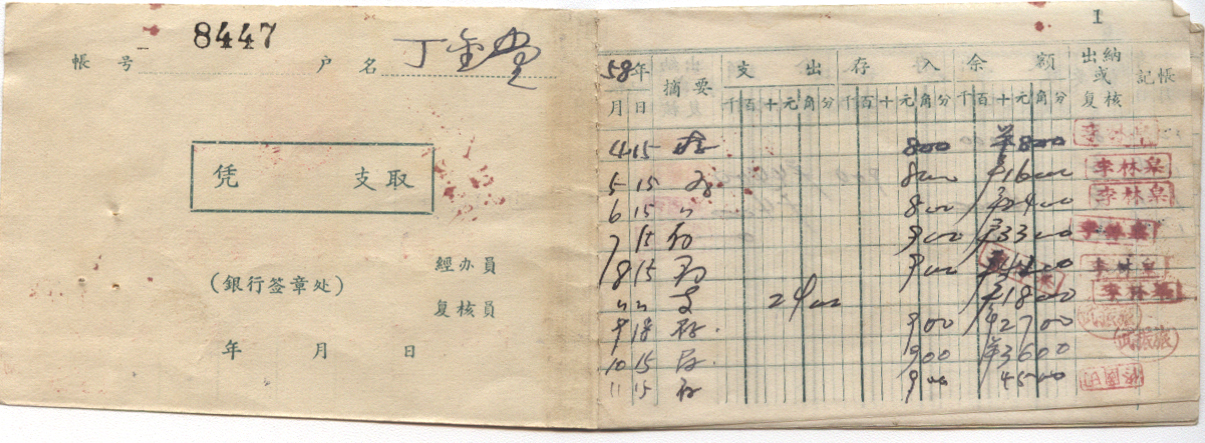 8447
帳号 户名 丁金堂
凭 支取
(銀行签章处)
經办員
复核員
年 月 日
1
58年 摘要 支出 存入 余额 出納或复核 記帳
月 日 千百十元角分 千百十元角分 千百十元角分
4 15 存 800 ¥800 李林泉
5 15 存 800 ¥1600 李林泉
6 15 〃 800 ¥2400 李林泉
7 15 存 900 ¥3300 李林泉
8 15 存 900 李林泉
〃 〃 支 2400 ¥1800 李林泉
9 18 存 900 ¥2700
10 15 存 900 ¥3600
11 15 存 900 4500